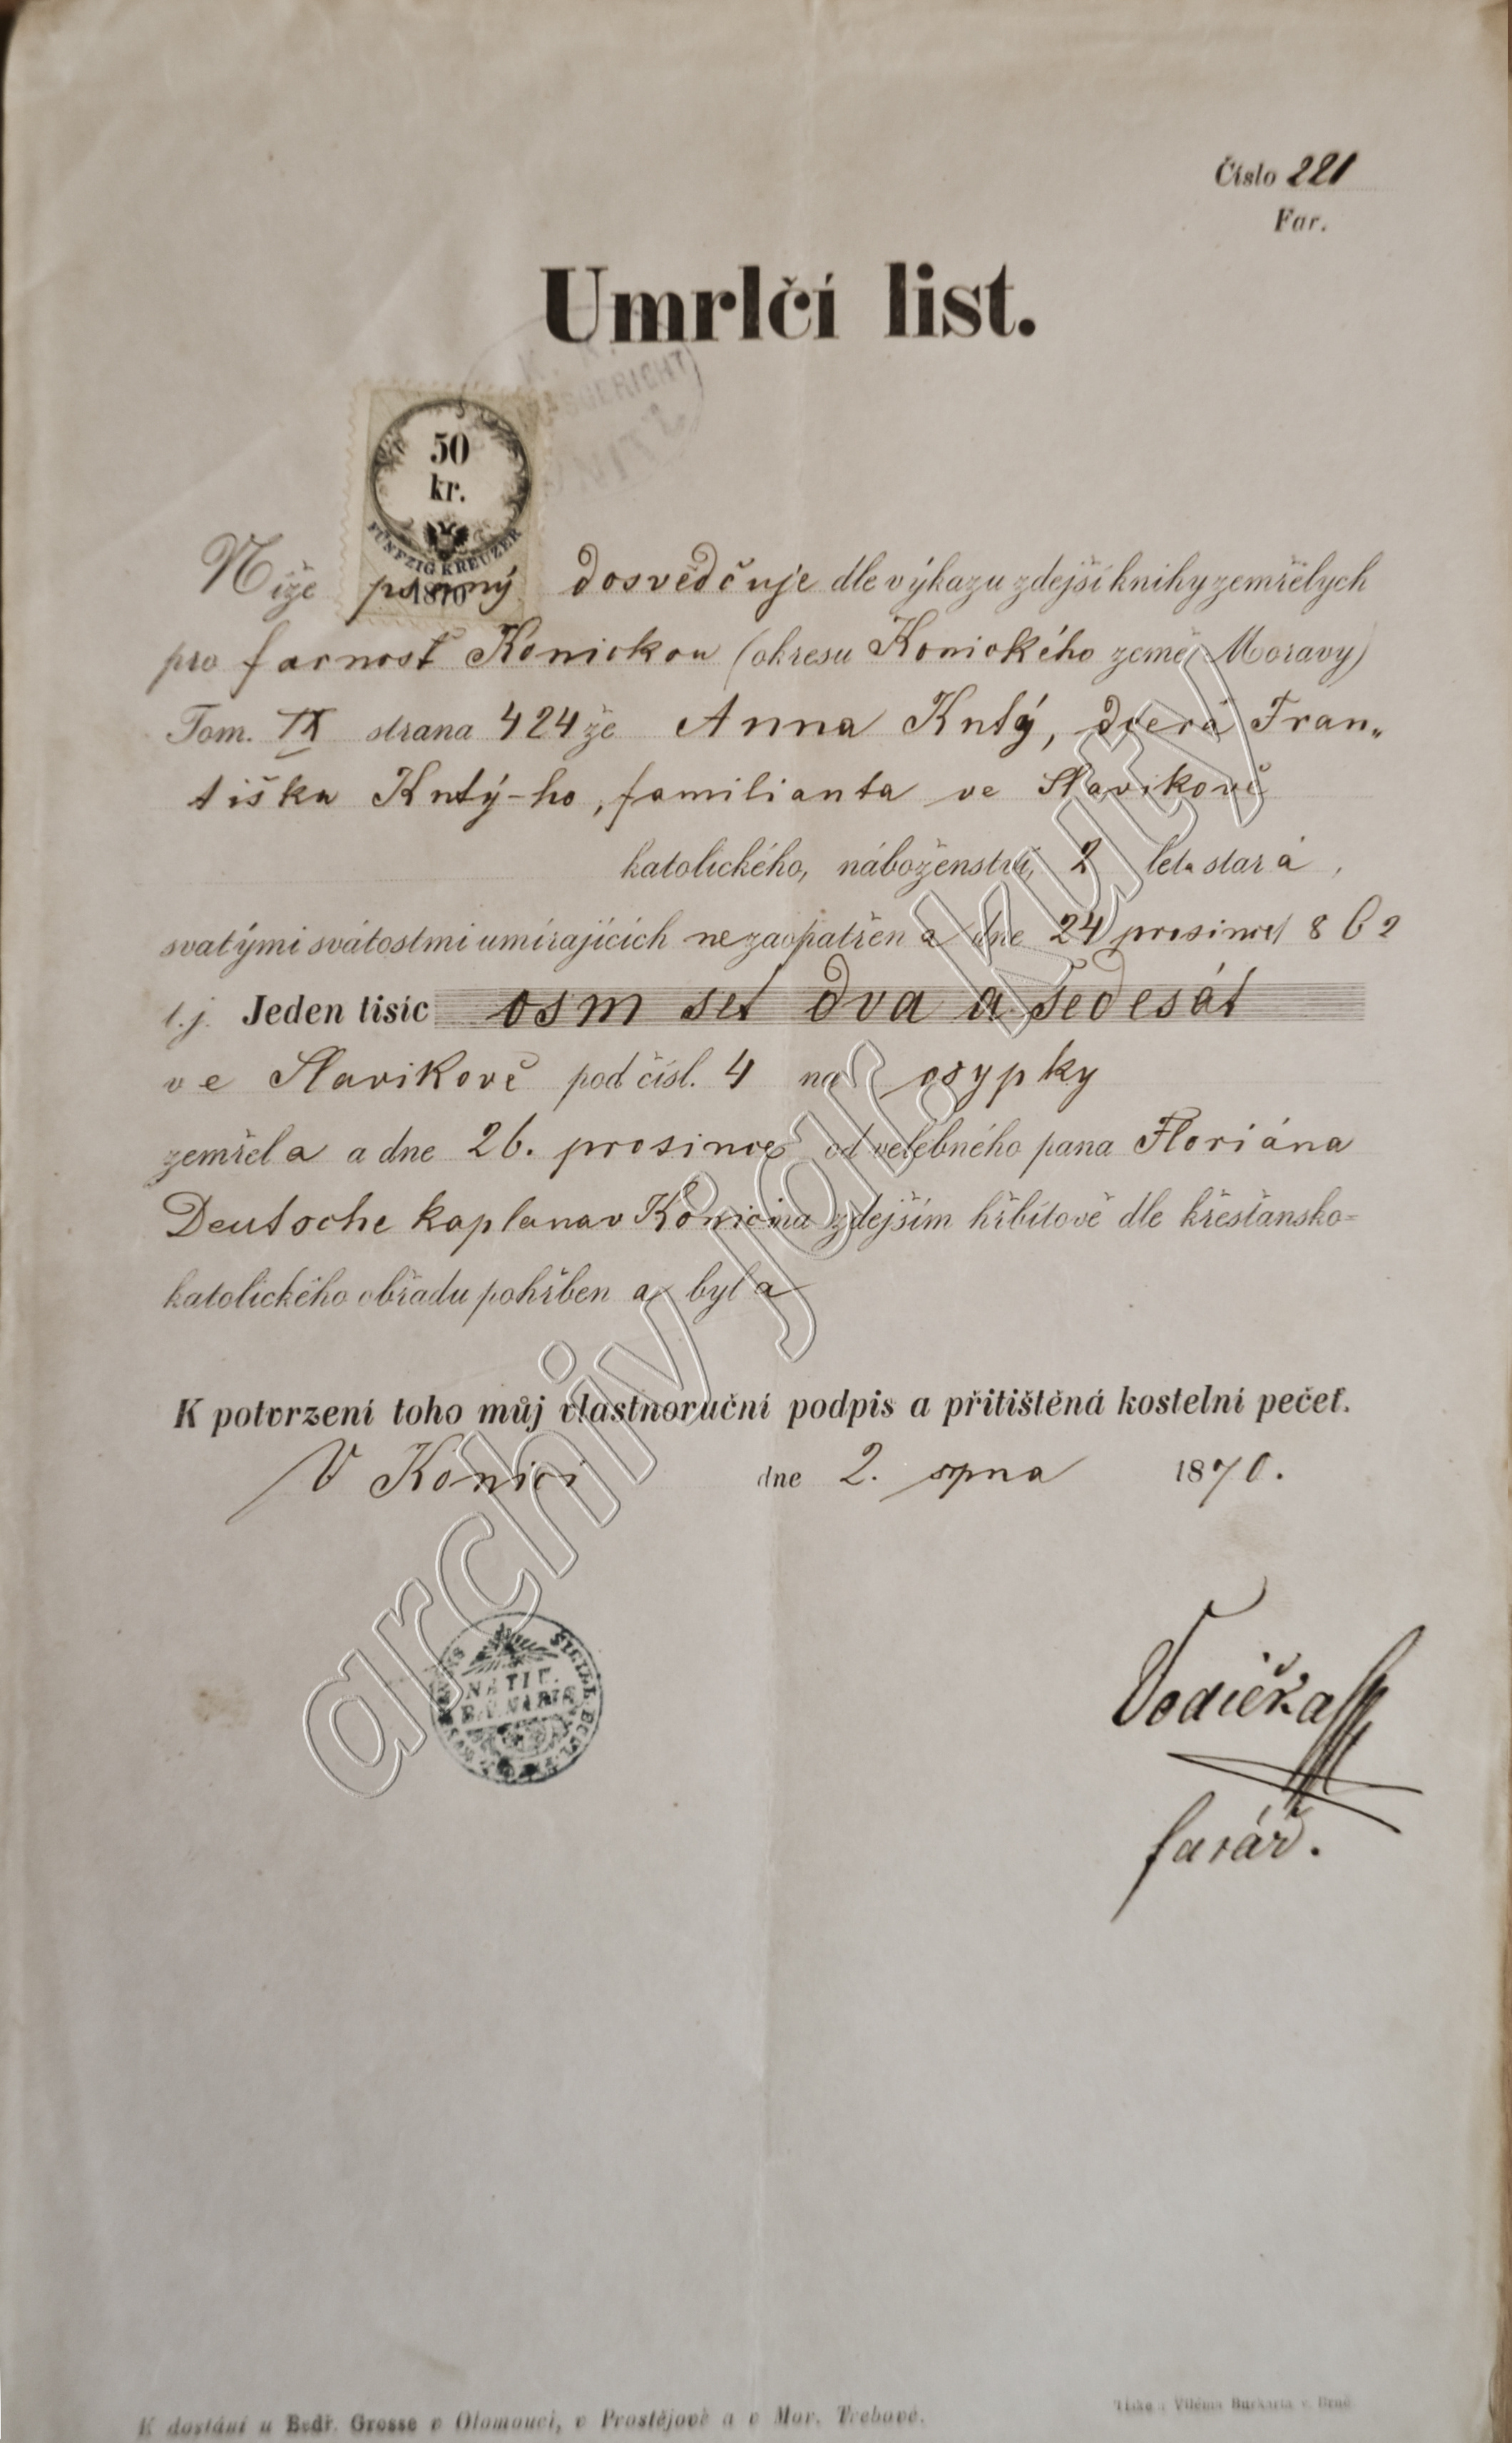 Číslo 221
Far.
Umrlčí list.
50
kr.
FÜNFZIG KREUZER
1870
Níže psaný dosvědčuje dle výkazu zdejší knihy zemřelych
pro farnosť Konickou (okresu Konického země Moravy)
Tom. IX strana 424 že Anna Kutý, dcera Fran„
tiška Kutý-ho, familianta ve Slavikově
katolického, náboženství, 2 leta stará,
svatými svátostmi umírajících nezaopatřena dne 24 prosince 1862
t.j. Jeden tisíc osm set dva a šedesát
ve Slavikově pod čísl. 4 na osypky
zemřela a dne 26. prosince od velebného pana Floriána
Deutsche kaplana v Konici na zdejším hřbitově dle křesťansko=
katolického obřadu pohřbena byla
K potvrzení toho můj vlastnoruční podpis a přitištěná kostelní pečeť.
V Konici dne 2. srpna 1870.
Vodička
farář.
K dostání u Bedř. Grosse v Olomouci, v Prostějově a v Mor. Třebové.
Tisk Viléma Burkarta v Brně.
archiv jar. kutý